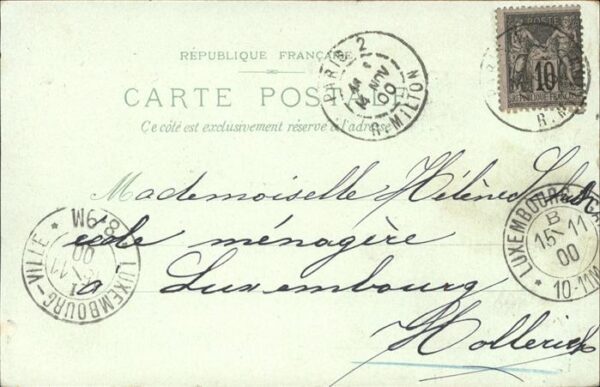 RÉPUBLIQUE FRANÇAISE
CARTE POSTALE
Ce côté est exclusivement réservé à l'adresse
PARIS 2
NOV
00
R. MILTON
POSTE
10
RÉPUBLIQUE FRANÇAISE
R. M
Mademoiselle Hélène
école ménagère
Luxembourg
Hollerich
LUXEMBOURG-VILLE
11
00
8-9M
LUXEMBOURG-GA
B
15 11
00
10-11M